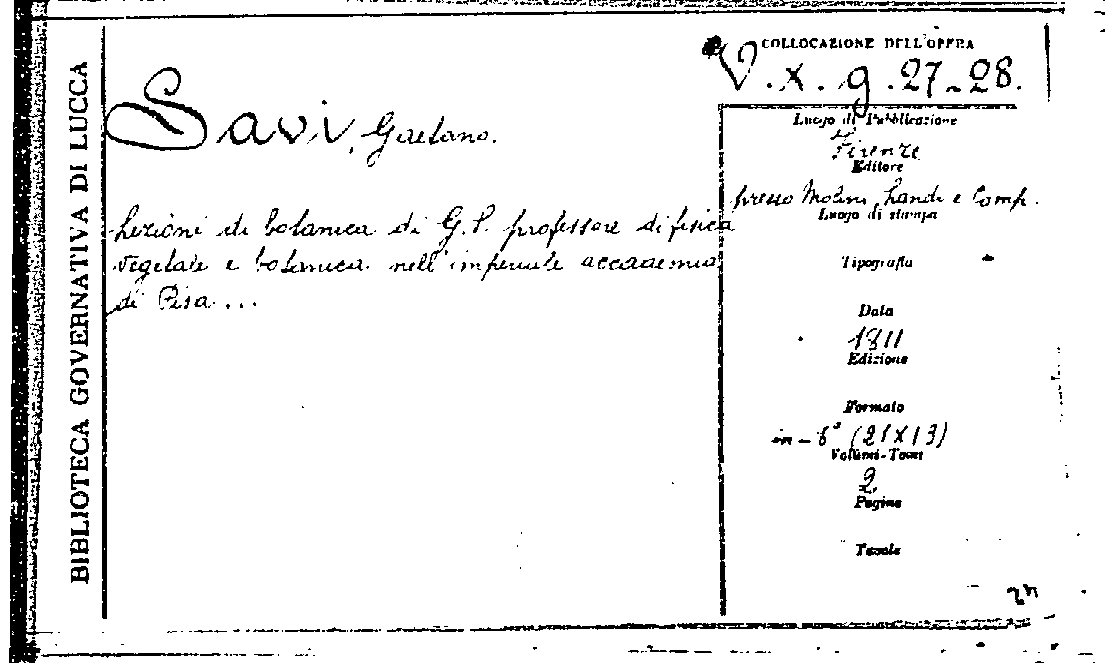 BIBLIOTECA GOVERNATIVA DI LUCCA
COLLOCAZIONE DELL'OPERA
V. x. g. 27-28.
Savi, Gaetano.
Lezioni di botanica di G. S. professore di fisica
vegetale e botanica nell'imperiale accademia
di Pisa ...
Luogo di Pubblicazione
Firenze
Editore
presso Molini, Landi e Comp.
Luogo di stampa
Tipografia
Data
1811
Edizione
Formato
in-8° (21x13)
Volumi-Tomi
2
Pagine
Tavole